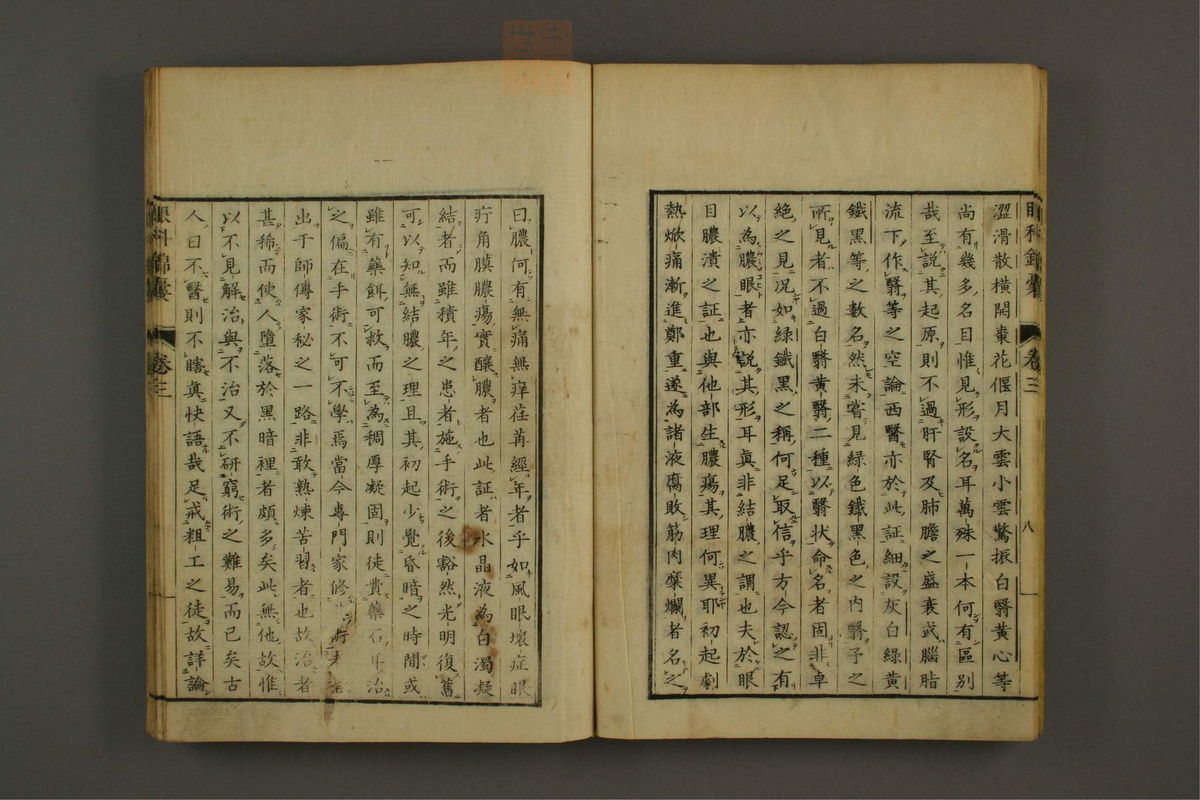 澀滑散橫開棗花偃月大雲小雲驚振白翳黃心等
尚有幾多名目惟見形設名耳萬殊一本何有區別
哉至說其起原則不過肝腎及肺膽之盛衰或腦脂
流下作翳等之空論西醫亦於此証細設灰白綠黃
鐵黑等之數名然未嘗見綠色鐵黑色之內翳予之
所見者不過白翳黃翳二種以翳狀命名者固非卓
絕之見況如綠鐵黑之稱何足取信乎方今認之有
以為膿眼者亦說其形耳眞非結膿之謂也夫於眼
目膿潰之証也與他部生膿瘍其理何異耶初起劇
熱焮痛漸進鄭重遂為諸液腐敗筋肉糜爛者名之
眼科錦囊
卷三
八
曰膿何有無痛無痒荏苒經年者乎如風眼壞症眼
疔角膜膿瘍實釀膿者也此証者水晶液為白濁凝
結者而雖積年之患者施手術之後豁然光明復舊
可以知無結膿之理且其初起少覺昏暗之時間或
雖有藥餌可救而至為稠厚凝固則徒費藥石耳治
之偏在手術不可不學焉當今專門家修術者
出于師傳家秘之一路非敢熟煉苦習者也故治者
甚稀而使人墮落於黑暗裡者頗多矣此無他故惟
以不見解治與不治又不研窮術之難易而已矣古
人曰不醫則不瞎眞快語哉足戒粗工之徒故詳論
眼科錦囊
卷三